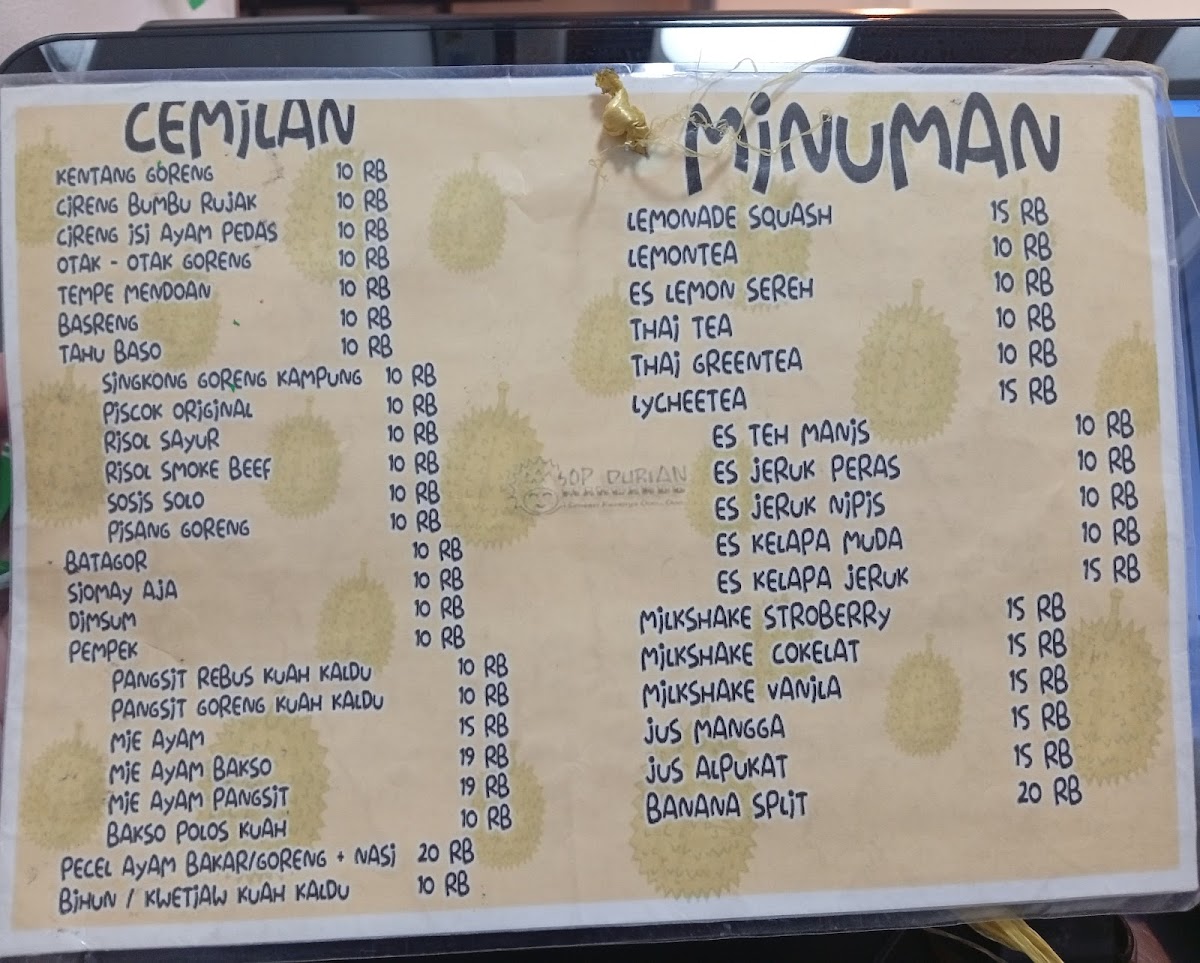 CEMILAN
KENTANG GORENG 10 RB
CIRENG BUMBU RUJAK 10 RB
CIRENG ISI AYAM PEDAS 10 RB
OTAK - OTAK GORENG 10 RB
TEMPE MENDOAN 10 RB
BASRENG 10 RB
TAHU BASO 10 RB
SINGKONG GORENG KAMPUNG 10 RB
PISCOK ORIGINAL 10 RB
RISOL SAYUR 10 RB
RISOL SMOKE BEEF 10 RB
SOSIS SOLO 10 RB
PISANG GORENG 10 RB
BATAGOR 10 RB
SIOMAY AJA 10 RB
DIMSUM 10 RB
PEMPEK 10 RB
PANGSIT REBUS KUAH KALDU 10 RB
PANGSIT GORENG KUAH KALDU 10 RB
MIE AYAM 15 RB
MIE AYAM BAKSO 19 RB
MIE AYAM PANGSIT 19 RB
BAKSO POLOS KUAH 10 RB
PECEL AYAM BAKAR/GORENG + NASI 20 RB
BIHUN / KWETIAW KUAH KALDU 10 RB
SOP DURIAN
MINUMAN
LEMONADE SQUASH 15 RB
LEMONTEA 10 RB
ES LEMON SEREH 10 RB
THAI TEA 10 RB
THAI GREENTEA 10 RB
LYCHEETEA 15 RB
ES TEH MANIS 10 RB
ES JERUK PERAS 10 RB
ES JERUK NIPIS 10 RB
ES KELAPA MUDA 10 RB
ES KELAPA JERUK 15 RB
MILKSHAKE STROBERRY 15 RB
MILKSHAKE COKELAT 15 RB
MILKSHAKE VANILA 15 RB
JUS MANGGA 15 RB
JUS ALPUKAT 15 RB
BANANA SPLIT 20 RB